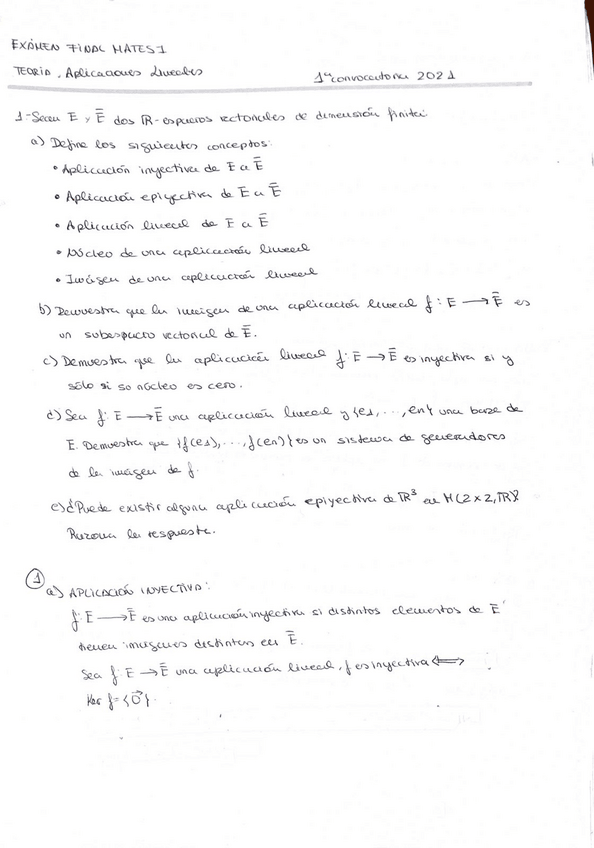 EXÁMEN FINAL MATES 1
TEORIA. Aplicaciones lineales 1ª convocatoria 2021
1- Sean E y Ē dos ℝ-espacios vectoriales de dimensión finita:
a) Define los siguientes conceptos:
• Aplicación inyectiva de E a Ē
• Aplicación epiyectiva de E a Ē
• Aplicación lineal de E a Ē
• Núcleo de una aplicación lineal
• Imágen de una aplicación lineal
b) Demuestra que la imagen de una aplicación lineal f: E → Ē es
un subespacio vectorial de Ē.
c) Demuestra que la aplicación lineal f: E → Ē es inyectiva si y
sólo si so núcleo es cero.
d) Sea f: E → Ē una aplicación lineal y {e1, ..., en} una base de
E. Demuestra que {f(e1), ..., f(en)} es un sistema de generadores
de la imagen de f.
e) ¿Puede existir alguna aplicación epiyectiva de ℝ³ en M(2x2, ℝ)?
Razona la respuesta.
① a) APLICACIÓN INYECTIVA:
f: E → Ē es una aplicación inyectiva si distintos elementos de E
tienen imágenes distintas en Ē.
Sea f: E → Ē una aplicación lineal, f es inyectiva ⟺
Ker f = {0⃗}.